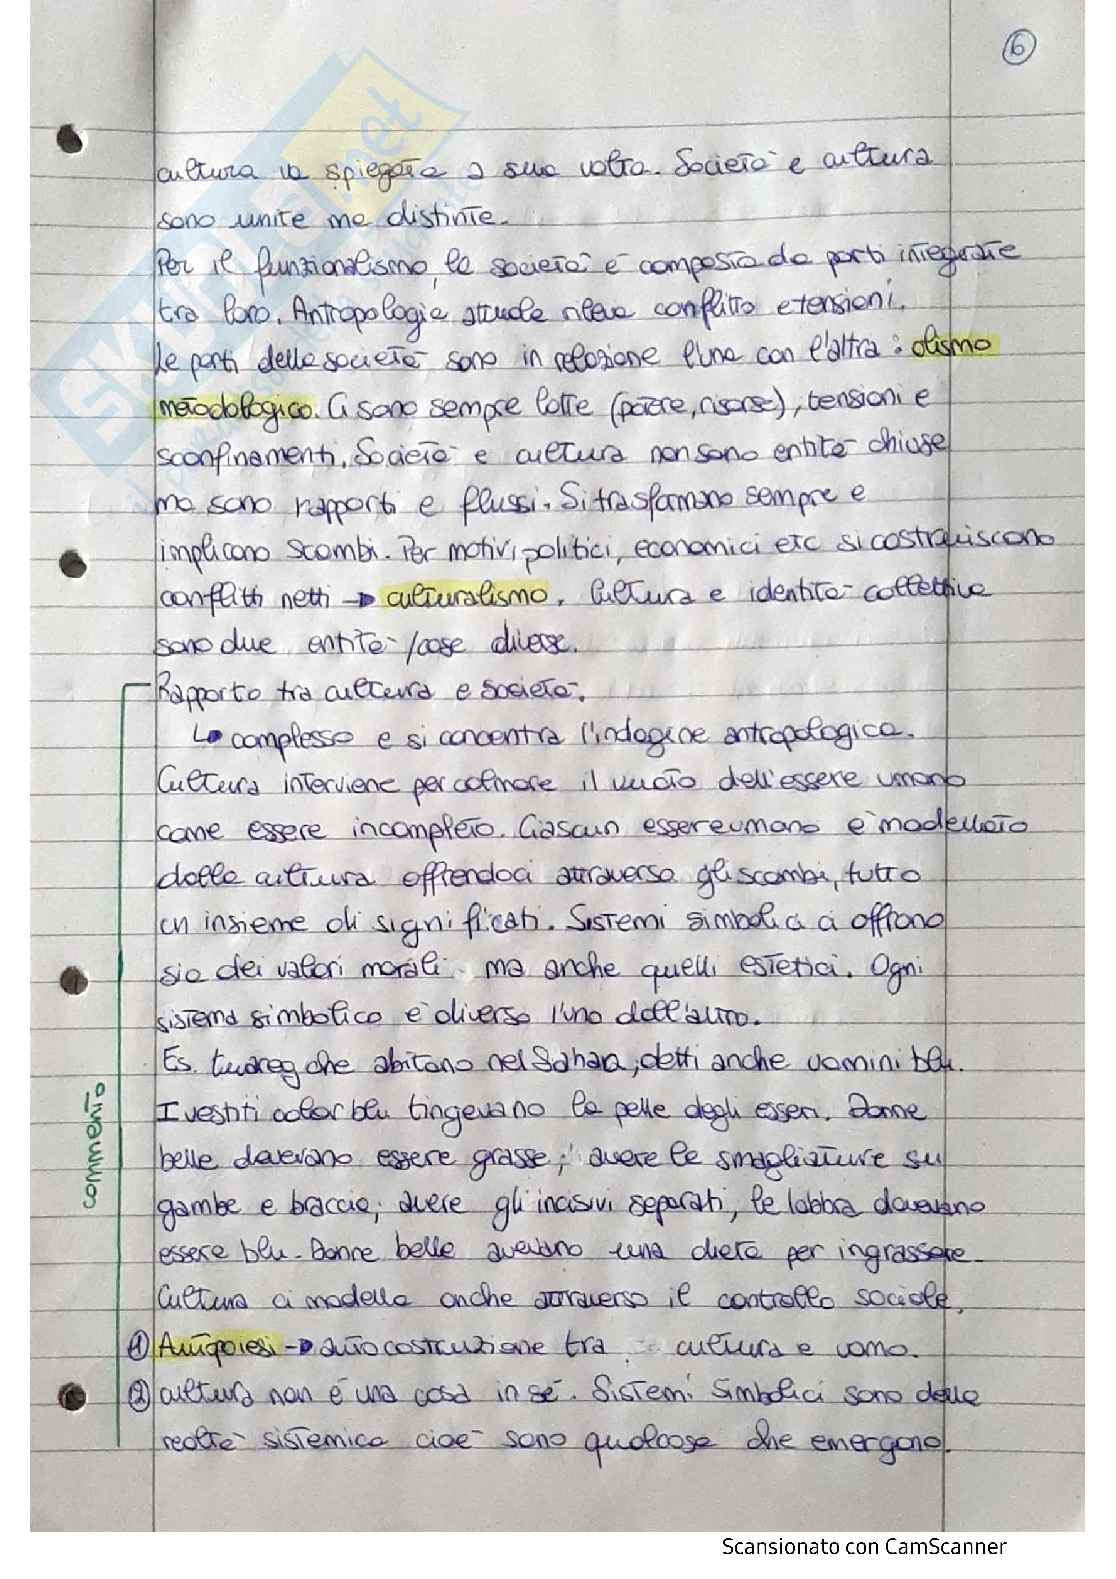 6
cultura va spiegata a sua volta. Società e cultura
sono unite ma distinte.
Per il funzionalismo la società è composta da parti integrate
tra loro. Antropologia attuale rileva conflitto e tensioni.
Le parti della società sono in relazione l'una con l'altra: olismo
metodologico. Ci sono sempre lotte (potere, risorse), tensioni e
sconfinamenti. Società e cultura non sono entità chiuse
ma sono rapporti e flussi. Si trasformano sempre e
implicano scambi. Per motivi politici, economici etc si costruiscono
conflitti netti → culturalismo. Cultura e identità collettiva
sono due entità/cose diverse.
Rapporto tra cultura e società.
↳ complesso e si concentra l'indagine antropologica.
Cultura interviene per colmare il vuoto dell'essere umano
come essere incompleto. Ciascun essere umano è modellato
dalla cultura offrendoci attraverso gli scambi, tutto
un insieme di significati. Sistemi simbolici ci offrono
sia dei valori morali ma anche quelli estetici. Ogni
sistema simbolico è diverso l'uno dall'altro.
Es. tuareg che abitano nel Sahara, detti anche uomini blu.
I vestiti color blu tingevano la pelle degli esseri. Donne
belle dovevano essere grasse; avere le smagliature su
gambe e braccia; avere gli incisivi separati, le labbra dovevano
essere blu. Donne belle avevano una dieta per ingrassare.
Cultura ci modella anche attraverso il controllo sociale.
① Antropoiesi → autocostruzione tra cultura e uomo.
② cultura non è una cosa in sé. Sistemi simbolici sono delle
realtà sistemica cioè sono qualcosa che emergono
Scansionato con CamScanner
SKUOLA.net